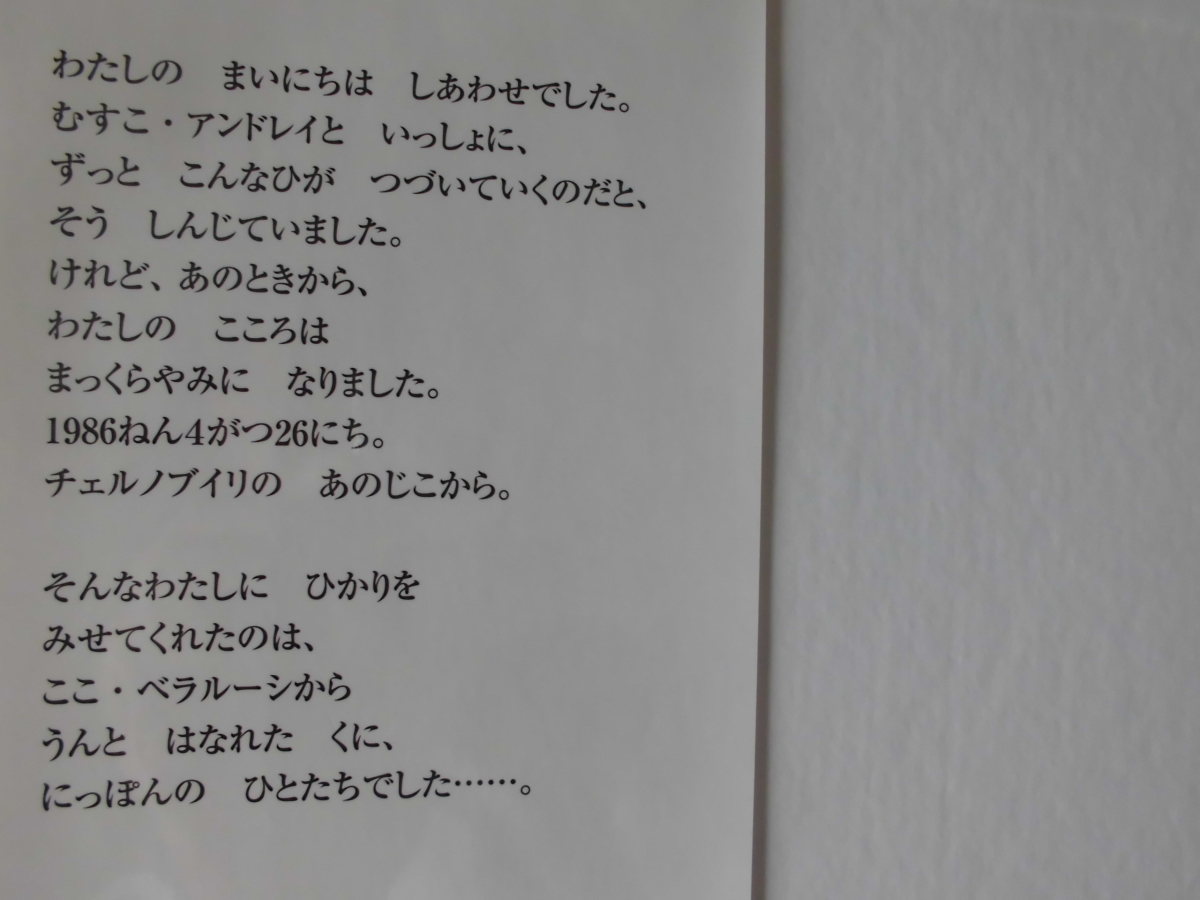 わたしの　まいにちは　しあわせでした。
むすこ・アンドレイと　いっしょに、
ずっと　こんなひが　つづいていくのだと、
そう　しんじていました。
けれど、あのときから、
わたしの　こころは
まっくらやみに　なりました。
1986ねん4がつ26にち。
チェルノブイリの　あのじこから。
そんなわたしに　ひかりを
みせてくれたのは、
ここ・ベラルーシから
うんと　はなれた　くに、
にっぽんの　ひとたちでした……。